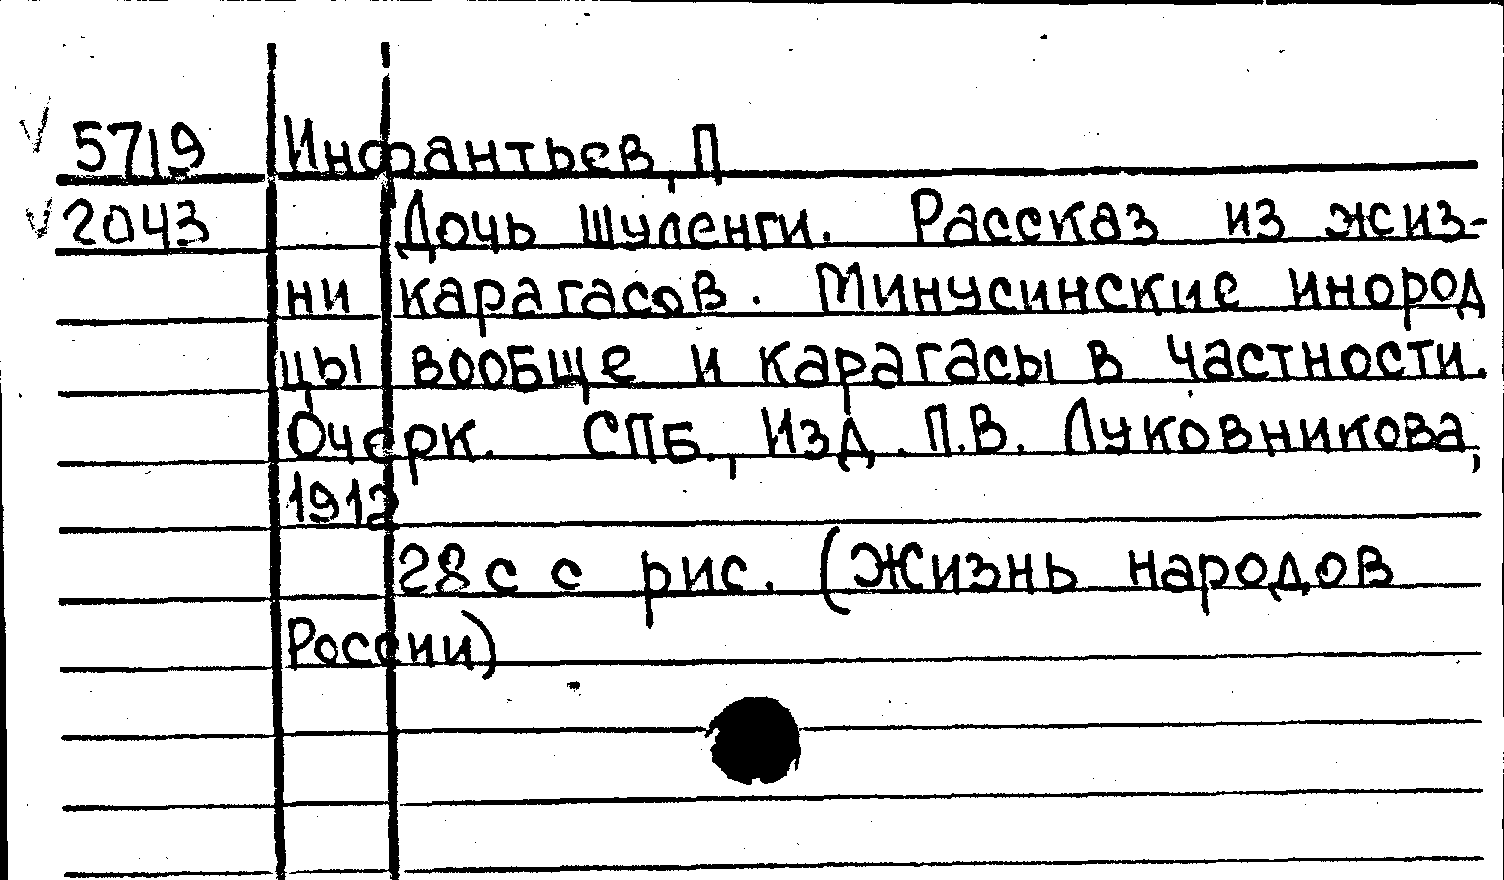 5719 Инфантьев, П
2043 Дочь шуленги. Рассказ из жиз-
ни карагасов. Минусинские инород
цы вообще и карагасы в частности.
Очерк. СПБ., Изд. П.В. Луковникова,
1912
28 с с рис. (Жизнь народов
России)